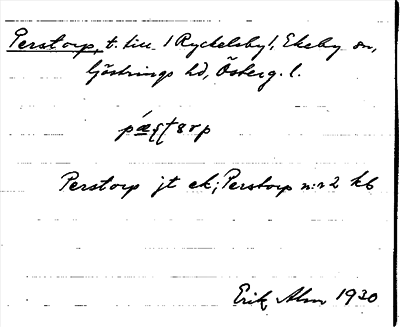 Perstorp, t. till. (Ryckelsby), Ekeby sn,
Göstrings hd, Österg. l.
pæʂtɔrp
Perstorp jt ek; Perstorp n:r 2 kb
Erik Alm 1930